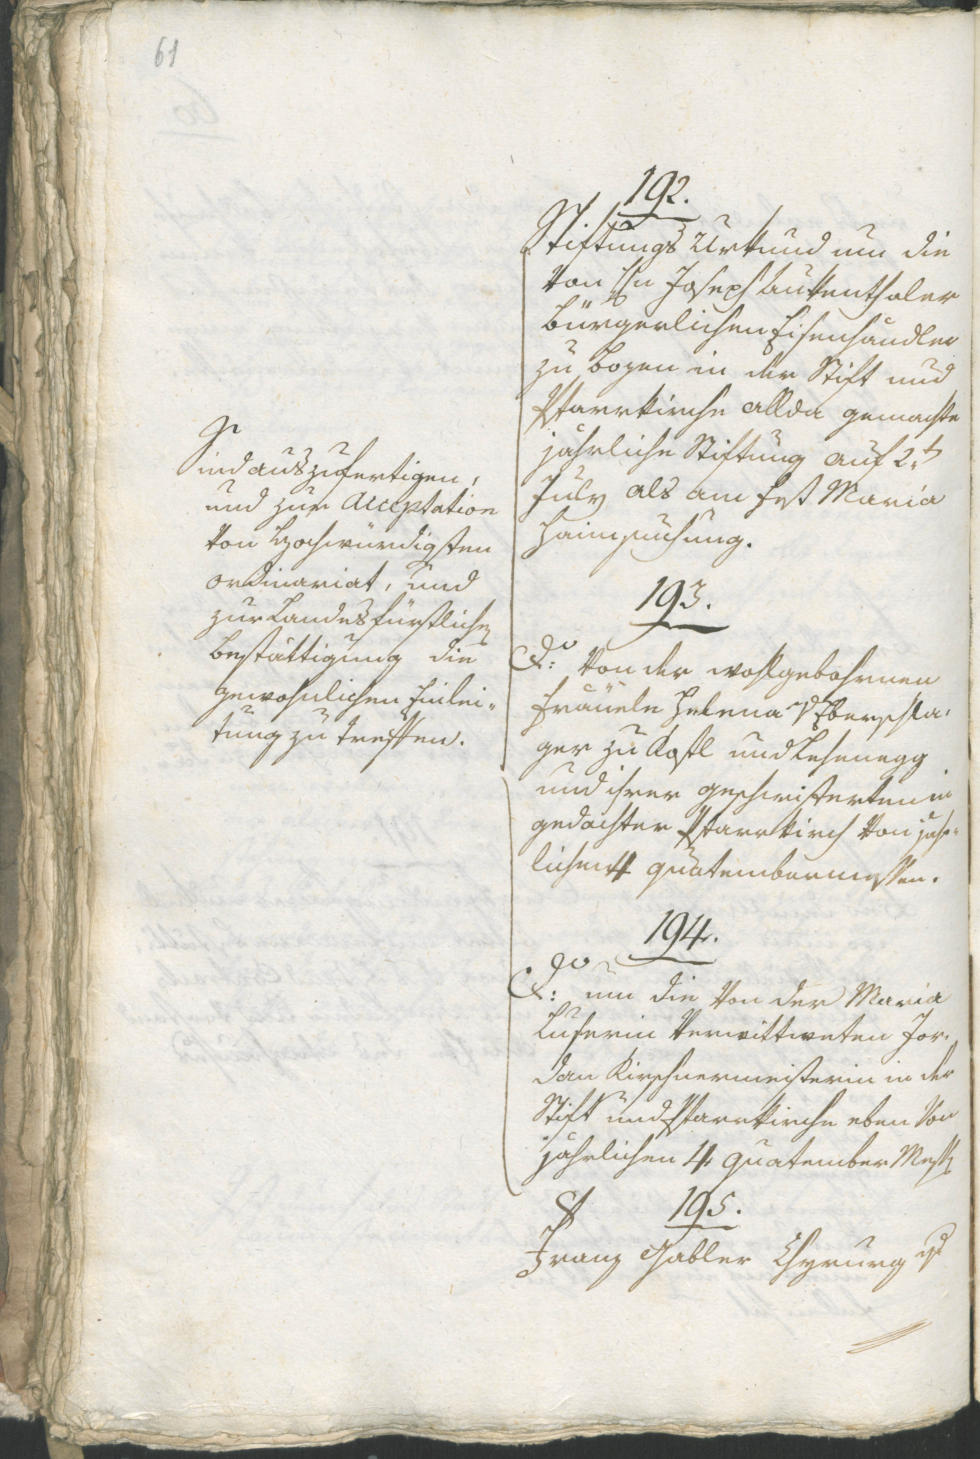 61
192.
Stiftungs Urkund um die
von Hn Joseph Aukenthaler
bürgerlichen Eisenhandler
zu Bozen in der Stift und
Pfarrkirche allda gemachte
jährliche Stiftung auf 2.t
July als am Fest Maria
Haimsuchung.
Sind auszufertigen,
und zur Acceptation
von Hochwürdigsten
ordinariat, und
zur Landesfürstlichen
Bestättigung die
gewohnlichen Einlei-
tung zu treffen.
193.
do: von der wohlgebohrnen
Fräuele Helena v Eberschla-
ger zu Kofl und Lehenegg
und ihrer geschwisterten in
gedachter Pfarrkirch von jähr-
lichen 4 quatembermessen.
194.
do: um die von der Maria
verwittweten Jor-
dan Kirschnermeisterin in der
Stift und Pfarrkirche eben von
jährlichen 4 quatember Messen
195.
Franz Gabler Chyrurg